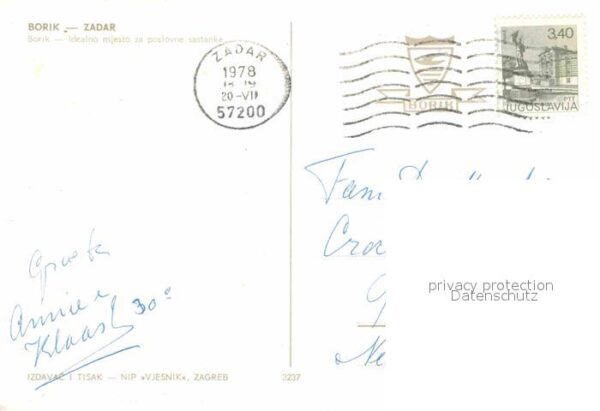 BORIK — ZADAR
Borik — Idealno mjesto za poslovne sastanke
ZADAR
1978
20-VII
57200
BORIK
3,40
PTT
JUGOSLAVIJA
Fam
privacy protection
Datenschutz
Annie
Klaas
30°
IZDAVAČ I TISAK — NIP »VJESNIK«, ZAGREB
3237